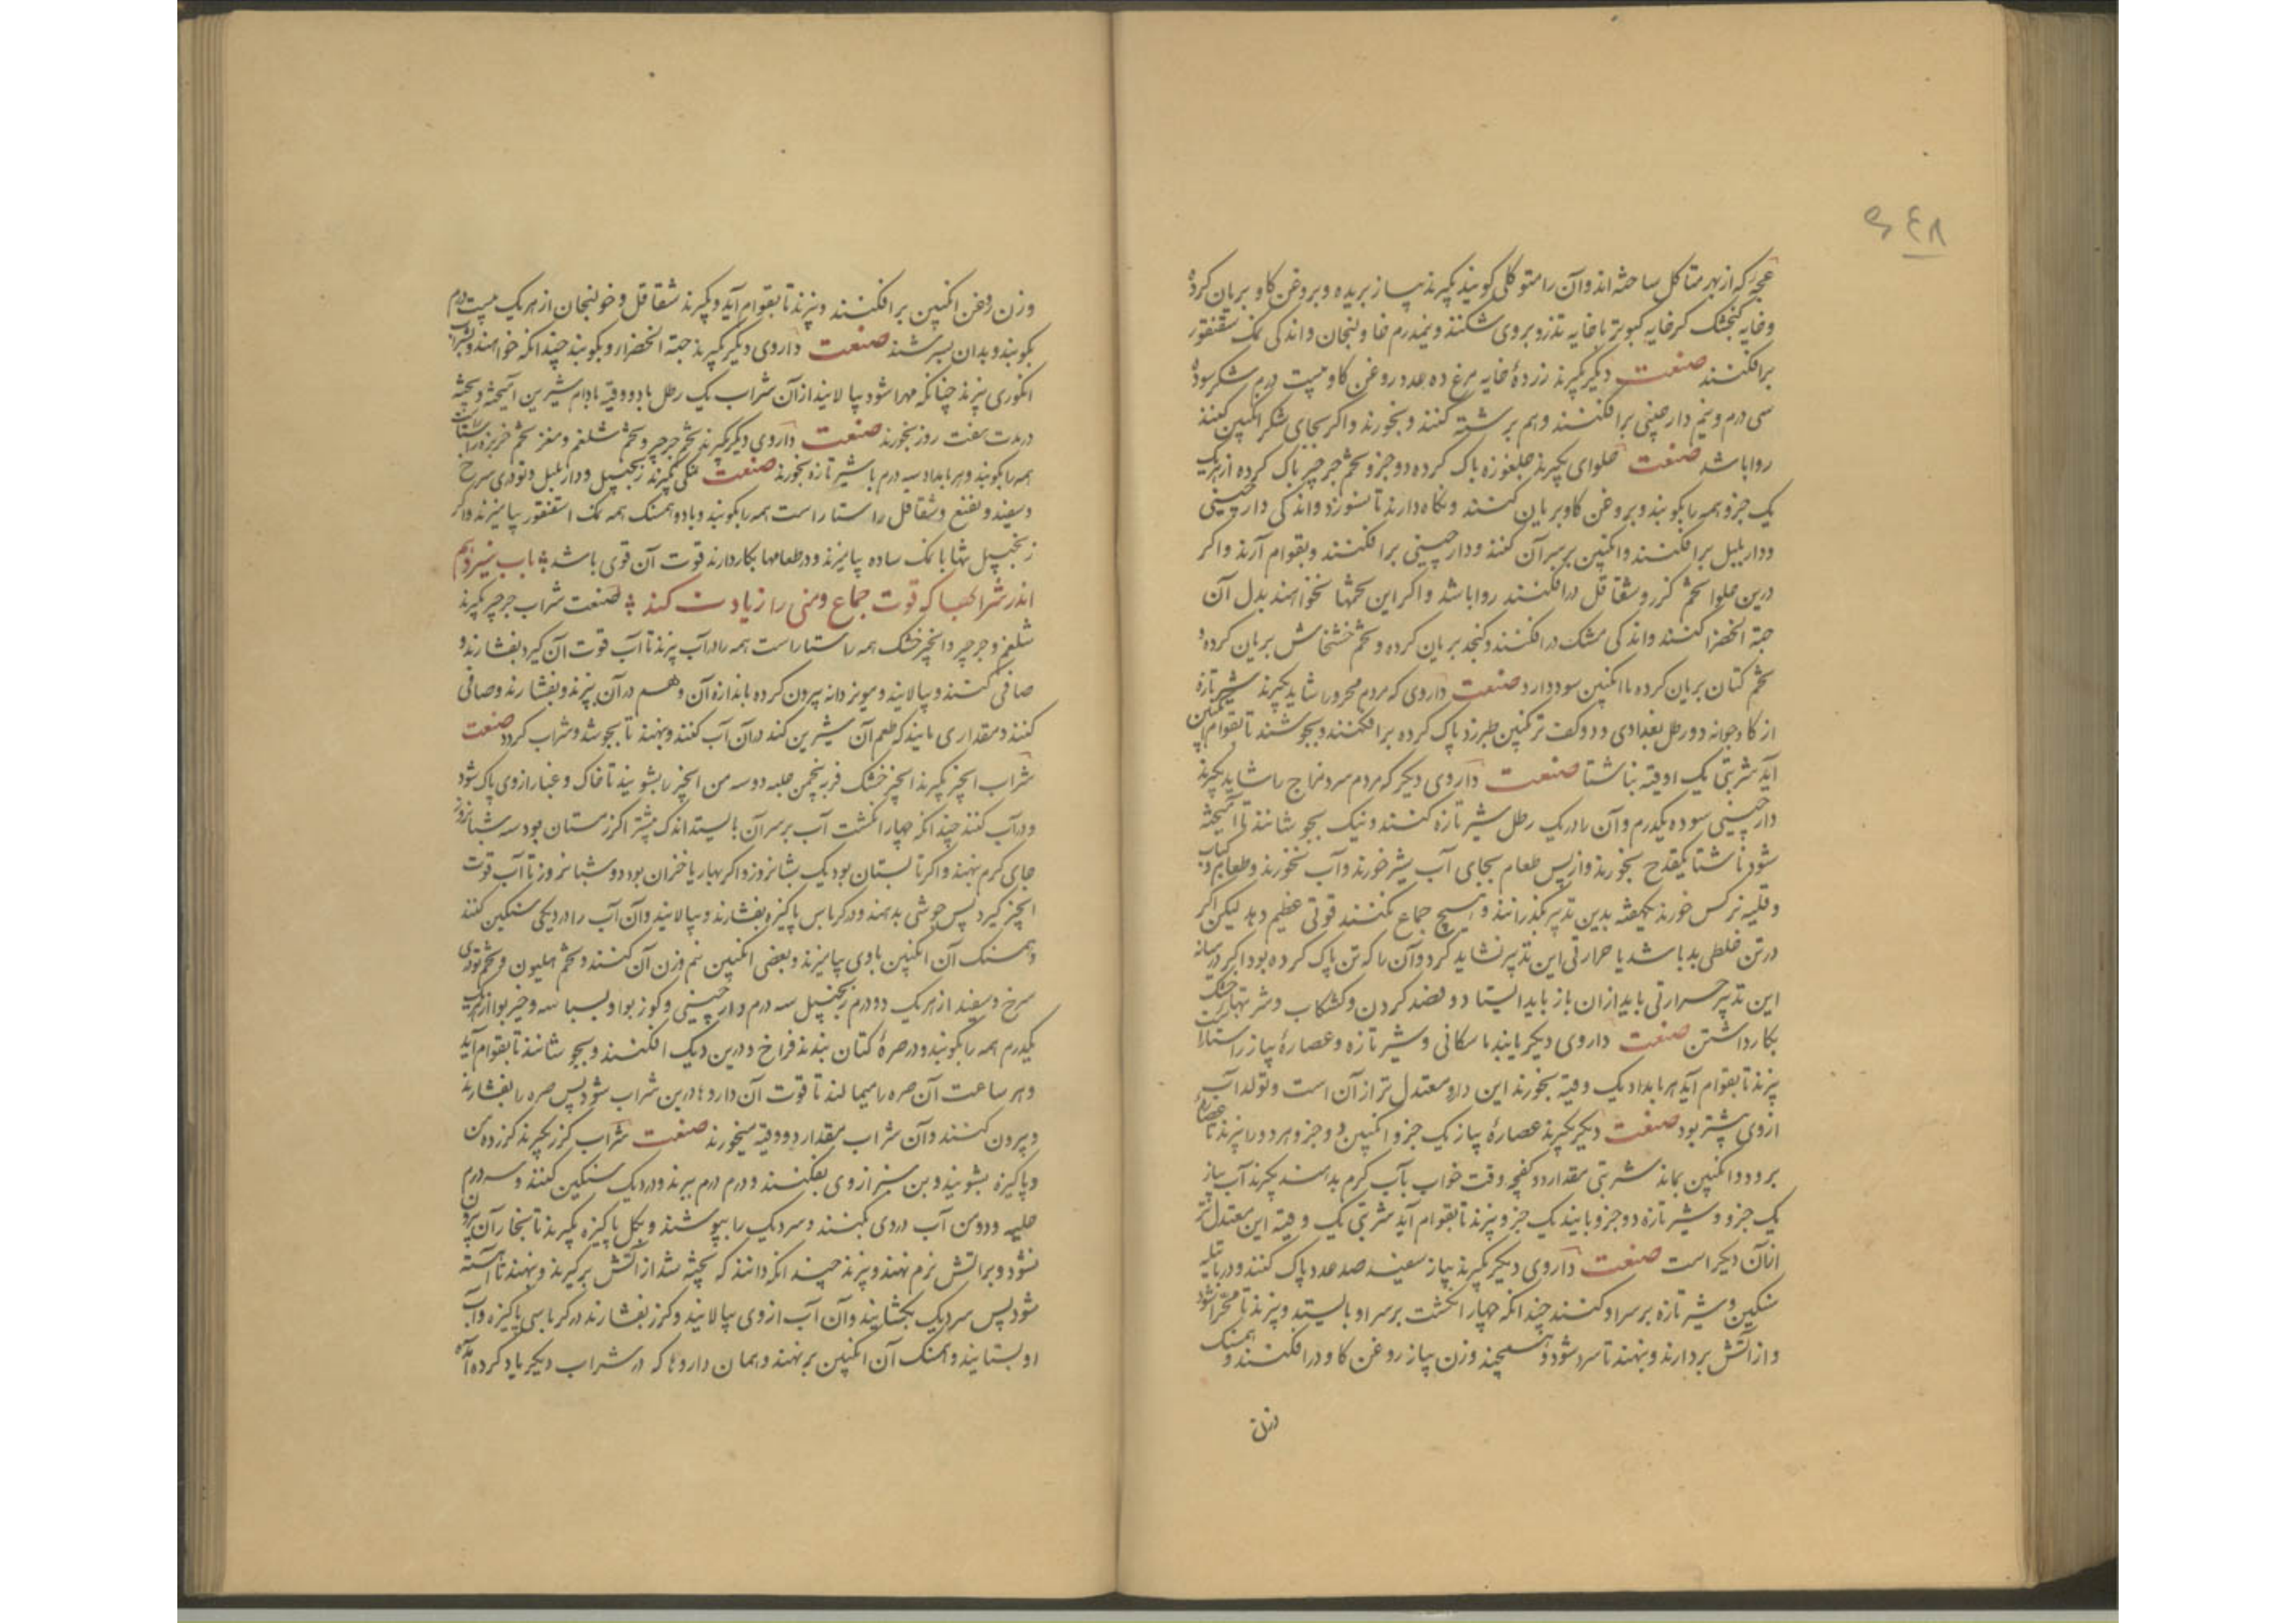 ۶۴۸
عجه که از بهر متاکل ساخته اند و آن را متوکلی کویند بکیرند پیاز بریده و بروغن کاو بریان کرده
و خایه کنجشک کر خایه کبوتر یا خایه تذرو بروی شکنند و نیمدرم خاولنجان و اندکی نمک سقنقور
برافکنند صنعت دیکر بکیرند زردهٔ خایه مرغ ده عدد روغن کاو بیست درم شکر سوده
سی درم و نیم دارچینی برافکنند و هم برشته کنند و بخورند و اکر بجای شکر انکبین کنند
روا باشد صنعت حلوای بکیرند جلغوزه پاک کرده دو جزو تخم جرجیر پاک کرده از هریک
یک جزو همه را بکوبند و بروغن کاو بریان کنند و نکاه دارند تا نسوزد و اندکی دارچینی
و دار بلبل برافکنند و انکبین بر سر آن کنند و دارچینی برافکنند و بقوام آرند و اکر
درین حلوا تخم کزر و شقاقل درافکنند روا باشد و اکر این تخمها نخواهند بدل آن
حبة الخضرا کنند و اندکی مشک درافکنند و کنجد بریان کرده و تخم خشخاش بریان کرده و
تخم کتان بریان کرده با انکبین سود دارد صنعت داروی که مردم محرور را شاید بکیرند شیر تازه
از کاو جوانه دو رطل بغدادی و دو کفت ترنکبین طبرزد پاک کرده برافکنند و بجوشند تا بقوام انکبین
آید شربتی یک اوقیه بناشتا صنعت داروی دیکر که مردم سرد مزاج را شاید بکیرند
دارچینی سوده یکدرم و آن را در یک رطل شیر تازه کنند و نیک بجوشانند تا آمیخته
شود ناشتا یکقدح بخورند و از پس طعام بجای آب شیر خورند و آب نخورند و طعام کباب
و قلیه نرکس خورند یکهفته بدین تدبیر بکذرانند و هیچ جماع نکنند قوتی عظیم دهد لیکن اکر
در تن خلطی بد باشد یا حرارتی این تدبیر نشاید کرد و آن را که تن پاک کرده بود اکر در میانه
این تدبیر حرارتی باید ازان باز باید ایستاد و فصد کردن و کشکاب و شربتهای خنک
بکار داشتن صنعت داروی دیکر بابند با سکانی و شیر تازه و عصارهٔ پیاز راستاراست
بپزند تا بقوام آید هر بامداد یک وقیه بخورند این دارو معتدل تر از آن است و تولد آب
ازوی بیشتر بود صنعت دیکر بکیرند عصارهٔ پیاز یک جزو انکبین دو جزو هر دو را بپزند تا عصاره
برود و انکبین بماند شربتی مقدار دو کفچه وقت خواب بآب کرم بدهند بکیرند آب پیاز
یک جزو و شیر تازه دو جزو بابند یک جزو بپزند تا بقوام آید شربتی یک وقیه این معتدل تر
ازان دیکر است صنعت داروی دیکر بکیرند پیاز سفید صد عدد پاک کنند و در پاتیله
سنکین و شیر تازه بر سر او کنند چندانکه چهار انکشت بر سر او بایستد و بپزند تا مهرا شود
و از آتش بردارند و بنهند تا سرد شود و بسنجند وزن پیاز روغن کاو درافکنند و همسنک
وزن
وزن روغن انکبین برافکنند و بپزند تا بقوام آید و بکیرند شقاقل و خولنجان از هریک بیست درم
بکوبند و بدان بسرشند صنعت داروی دیکر بکیرند حبة الخضرا و بکوبند چندانکه خواهند و بشراب
انکوری بپزند چنانکه مهرا شود بپالایند از آن شراب یک رطل با دو وقیه بادام شیرین آمیخته و پخته
در مدت هفت روز بخورند صنعت داروی دیکر بکیرند تخم جرجیر و تخم شلغم و مغز تخم خربزه راستاراست
همه را بکوبند و هر بامداد سه درم با شیر تازه بخورند صنعت نمکی بکیرند زنجبیل و دار بلبل و تودری سرخ
و سفید و نعنع و شقاقل راستاراست همه را بکوبند و با دو همسنک همه نمک اسقنقور بیامیزند و اکر
زنجبیل تنها با نمک ساده بیامیزند و در طعامها بکار دارند قوت آن قوی باشد باب سیزدهم
اندر شرابها که قوت جماع و منی را زیادت کند صنعت شراب جرجیر بکیرند
شلغم و جرجیر و انجیر خشک همه راستاراست همه را در آب بپزند تا آب قوت آن کیرد بفشارند و
صافی کنند و بپالایند و مویز دانه بیرون کرده باندازه آن و هم در آن بپزند و بفشارند و صافی
کنند و مقداری بایند که طعم آن شیرین کند در آن آب کنند و بنهند تا بجوشد و شراب کردد صنعت
شراب انجیر بکیرند انجیر خشک فربه پنجمن حلبه دو سه من انجیر را بشویند تا خاک و غبار ازوی پاک شود
و در آب کنند چندانکه چهار انکشت آب بر سر آن بایستد اندک بیشتر اکر زمستان بود سه شبانروز
جای کرم بنهند و اکر تابستان بود یک شبانروز و اکر بهار یا خزان بود دو شبانروز تا آب قوت
انجیر کیرد پس جوشی بدهند و در کرباس پاکیزه بفشارند و بپالایند و آن آب را در دیکی سنکین کنند
و همسنک آن انکبین با وی بیامیزند و بعضی انکبین نیم وزن آن کنند و تخم هلیون و تخم تودری
سرخ و سفید از هریک دو درم زنجبیل سه درم و دارچینی و کوز بوا و بسباسه و خیر بوا از هریک
یکدرم همه را بکوبند و در صرهٔ کتان بندند فراخ و درین دیک افکنند و بجوشانند تا بقوام آید
و هر ساعت آن صره را میمالند تا قوت آن داروها درین شراب شود پس صره را بفشارند
و بیرون کنند و آن شراب مقدار دو وقیه میخورند صنعت شراب کزر بکیرند کزر ده من
و پاکیزه بشویند و بن سبز ازوی بفکنند و درم درم ببرند و در دیک سنکین کنند و سه درم
حلبه و دو من آب در وی کنند و سر دیک را بپوشند و بکل پاکیزه بکیرند تا بخار آن بیرون
نشود و بر آتش نرم نهند و بپزند چندانکه دانند که پخته شد از آتش برکیرند و بنهند تا آهسته
شود پس سر دیک بکشایند و آن آب ازوی بپالایند و کزر بفشارند در کرباسی پاکیزه و آب
او بستانند و همسنک آن انکبین برنهند و همان داروها که در شراب دیکر یاد کرده آمده